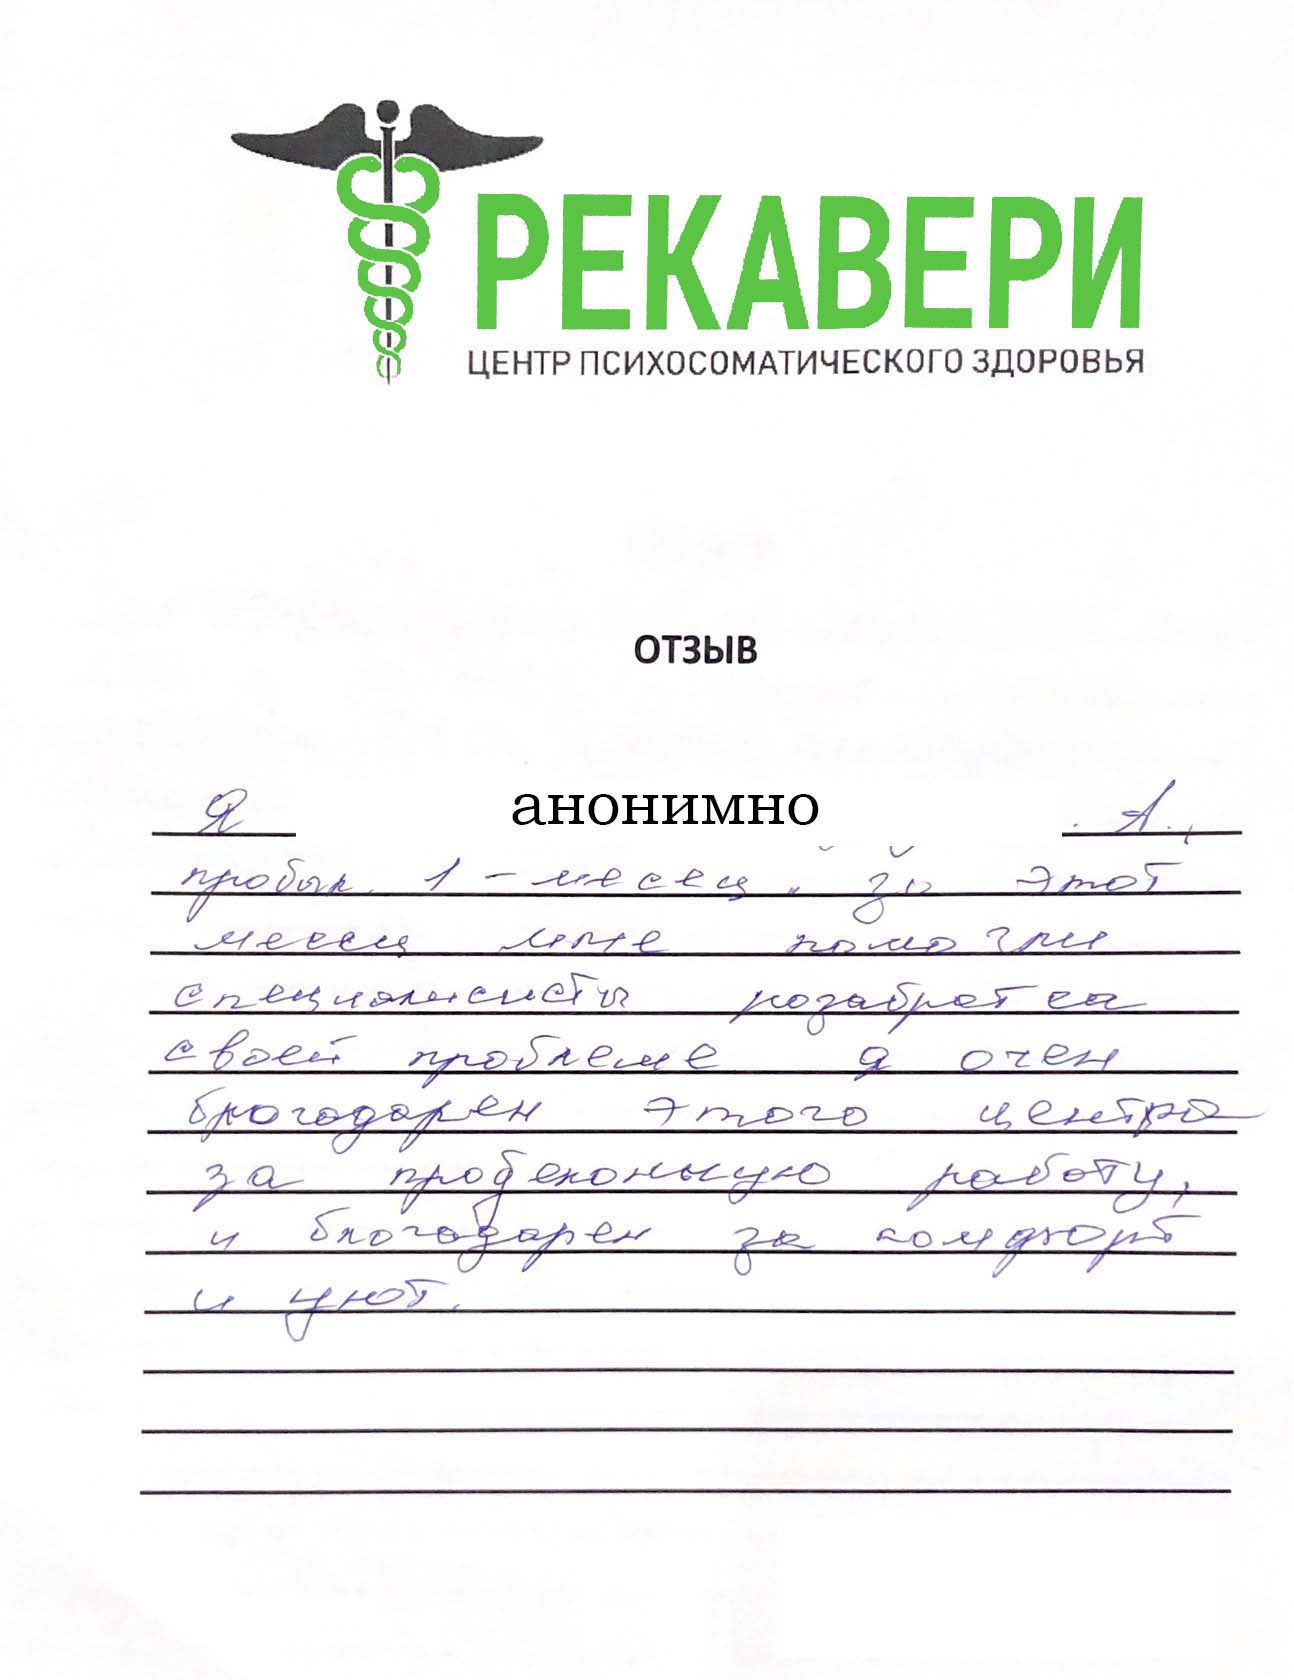 РЕКАВЕРИ
ЦЕНТР ПСИХОСОМАТИЧЕСКОГО ЗДОРОВЬЯ
ОТЗЫВ
Я анонимно . А.,
пробыл 1 - месец. за этот
месец мне помогли
специалисты розабратса
своей проблеме я очен
благодарен этого центра
за проделоную работу,
и благодарен за комфорт
и уют.